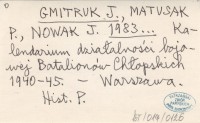 GMITRUK J., MATUSAK
P., NOWAK J. 1983... Ka-
lendarium działalności bojo-
wej Batalionów Chłopskich
1940-45. — Warszawa.
Hist. P.